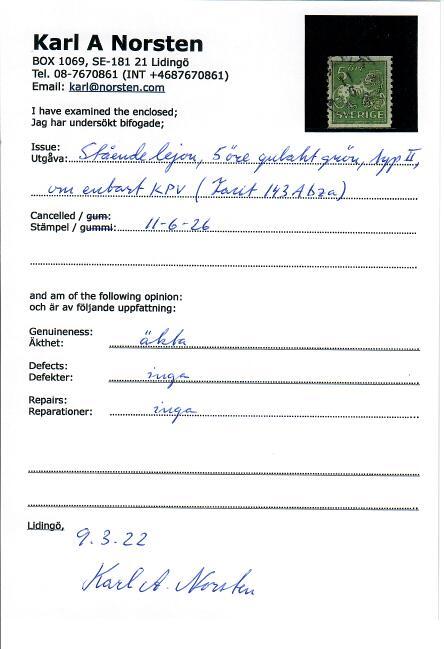 Karl A Norsten
BOX 1069, SE-181 21 Lidingö
Tel. 08-7670861 (INT +4687670861)
Email: karl@norsten.com
5 ÖRE
SVERIGE
I have examined the enclosed;
Jag har undersökt bifogade;
Issue:
Utgåva: Stående lejon, 5 öre gulakt grön, typ II,
vm enbart KPV (Facit 143Abza)
Cancelled / gum:
Stämpel / gummi: 11-6-26
and am of the following opinion:
och är av följande uppfattning:
Genuineness:
Äkthet: äkta
Defects:
Defekter: inga
Repairs:
Reparationer: inga
Lidingö,
9.3.22
Karl A. Norsten